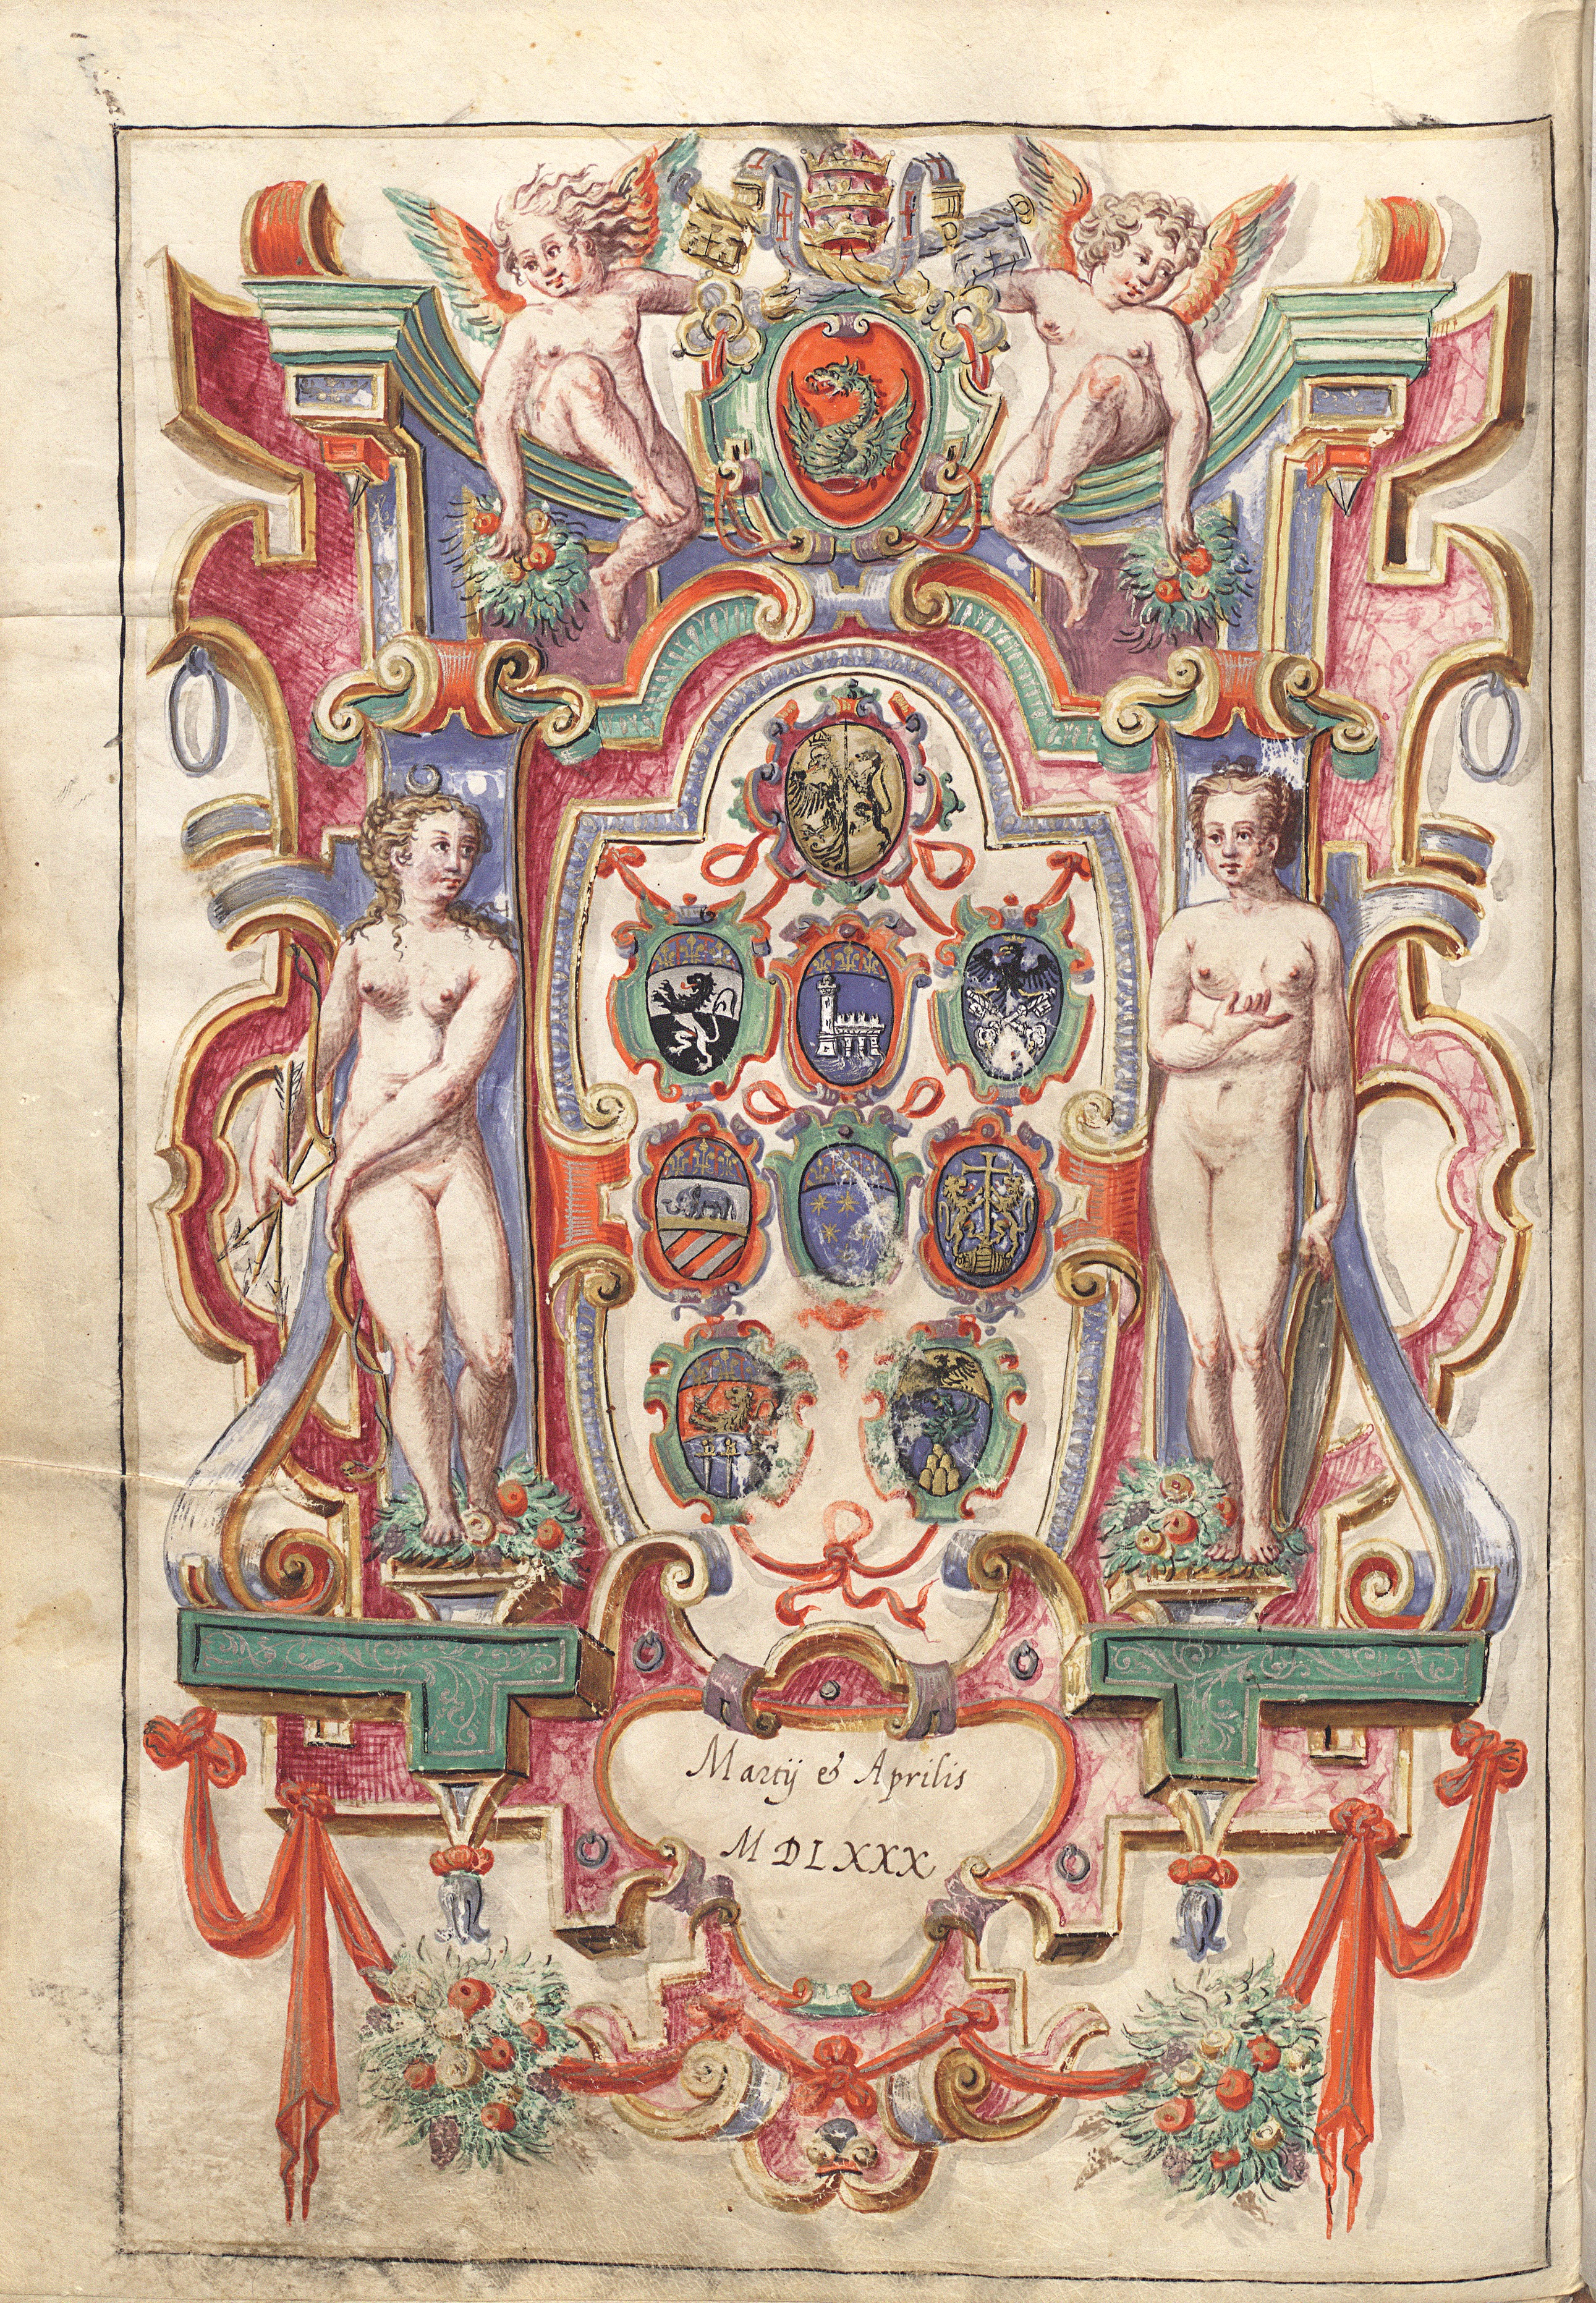 Martij & Aprilis
MDLXXX